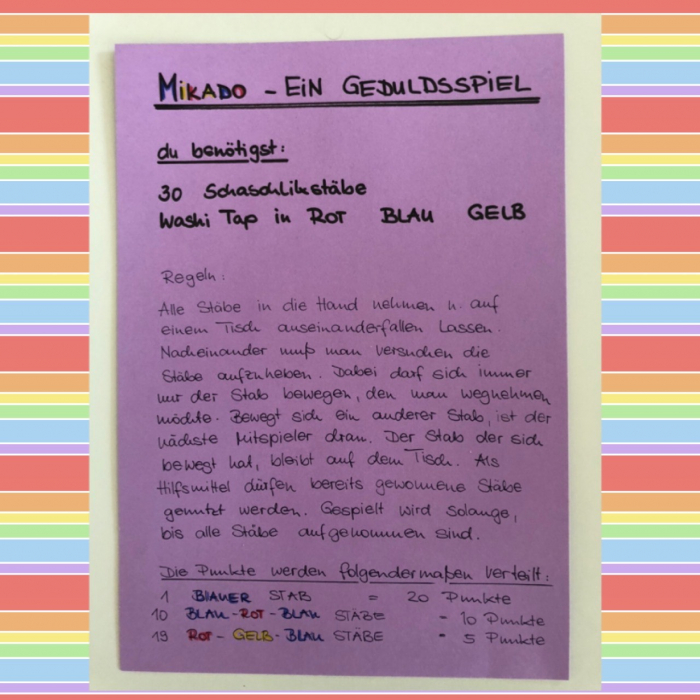 MiKADO - EiN GEDULDSSPIEL
du benötigst:
30 Schaschlikstäbe
Washi Tap in ROT BLAU GELB
Regeln:
Alle Stäbe in die Hand nehmen u. auf
einem Tisch auseinanderfallen lassen.
Nacheinander muß man versuchen die
Stäbe aufzuheben. Dabei darf sich immer
nur der Stab bewegen, den man wegnehmen
möchte. Bewegt sich ein anderer Stab, ist der
nächste Mitspieler dran. Der Stab der sich
bewegt hat, bleibt auf dem Tisch. Als
Hilfsmittel dürfen bereits gewonnene Stäbe
genutzt werden. Gespielt wird solange,
bis alle Stäbe aufgenommen sind.
Die Punkte werden folgendermaßen verteilt:
1 BLAUER STAB = 20 Punkte
10 BLAU-ROT-BLAU STÄBE = 10 Punkte
19 ROT-GELB-BLAU STÄBE = 5 Punkte